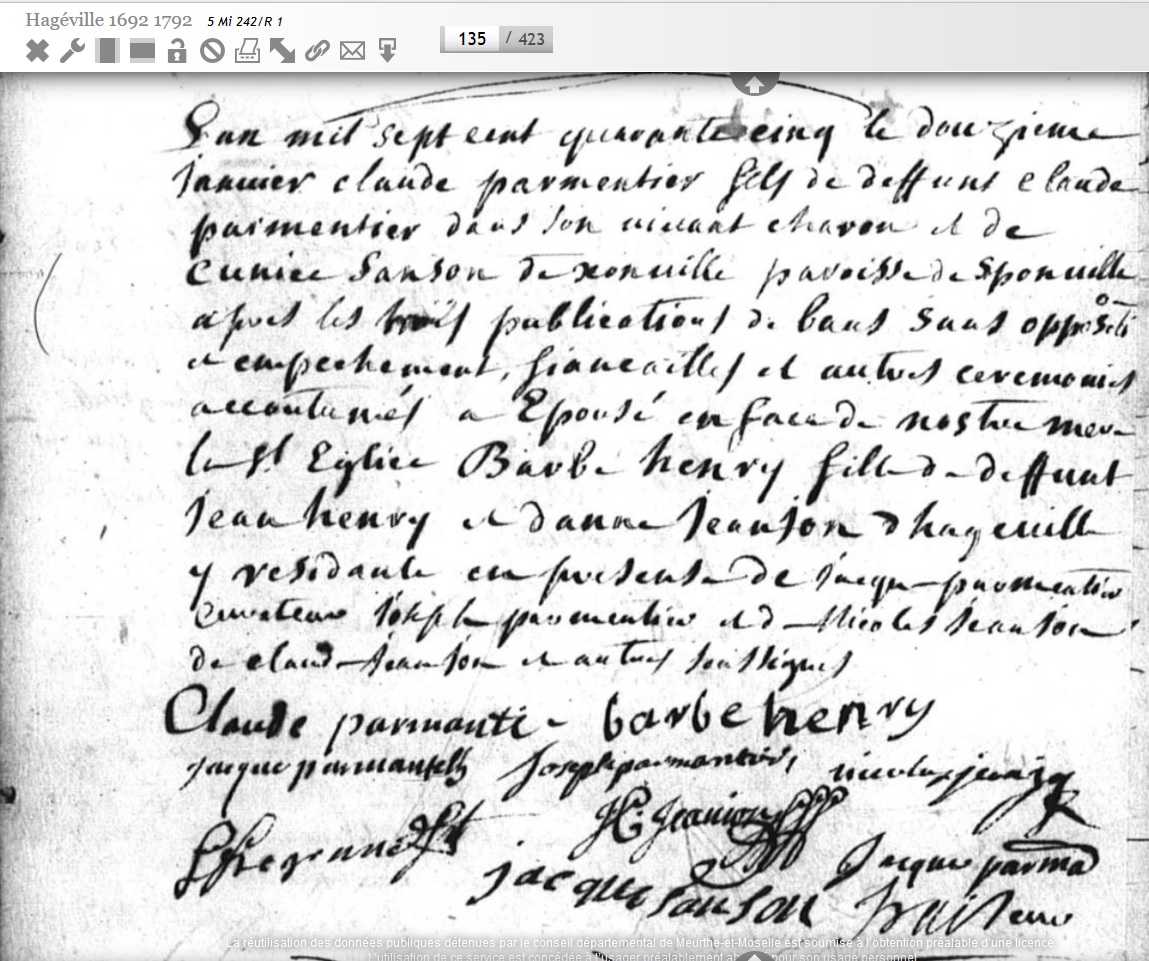 Hagéville 1692 1792 5 Mi 242/R 1
135 / 423
L'an mil sept cent quarante cinq le douzieme
Janvier claude parmentier fils de deffunt claude
parmentier dans son vivant charon et de
Sanson de xonville paroisse de Sponville
apres les trois publications de bans sans
et empechement, fiancailles et autres ceremonies
accoutumés a Epousé en face de nostre mere
la ste Eglice Barbe henry fille de deffunt
Jean henry et danne Jeanson dhageville
y residante en presense de jacque parmentier
curateur Joseph parmentier et de Nicolas Jeanson
de claude jeanson et autres soussignes
Claude parmanti barbe henry
jacque Joseph parmantier nicolas
Jeanson
jacque sanson Jacque parma
La réutilisation des données publiques détenues par le conseil départemental de Meurthe-et-Moselle est soumise à l'obtention préalable d'une licence.
L'utilisation de ce service est concédée à l'usager préalablement pour son usage personnel